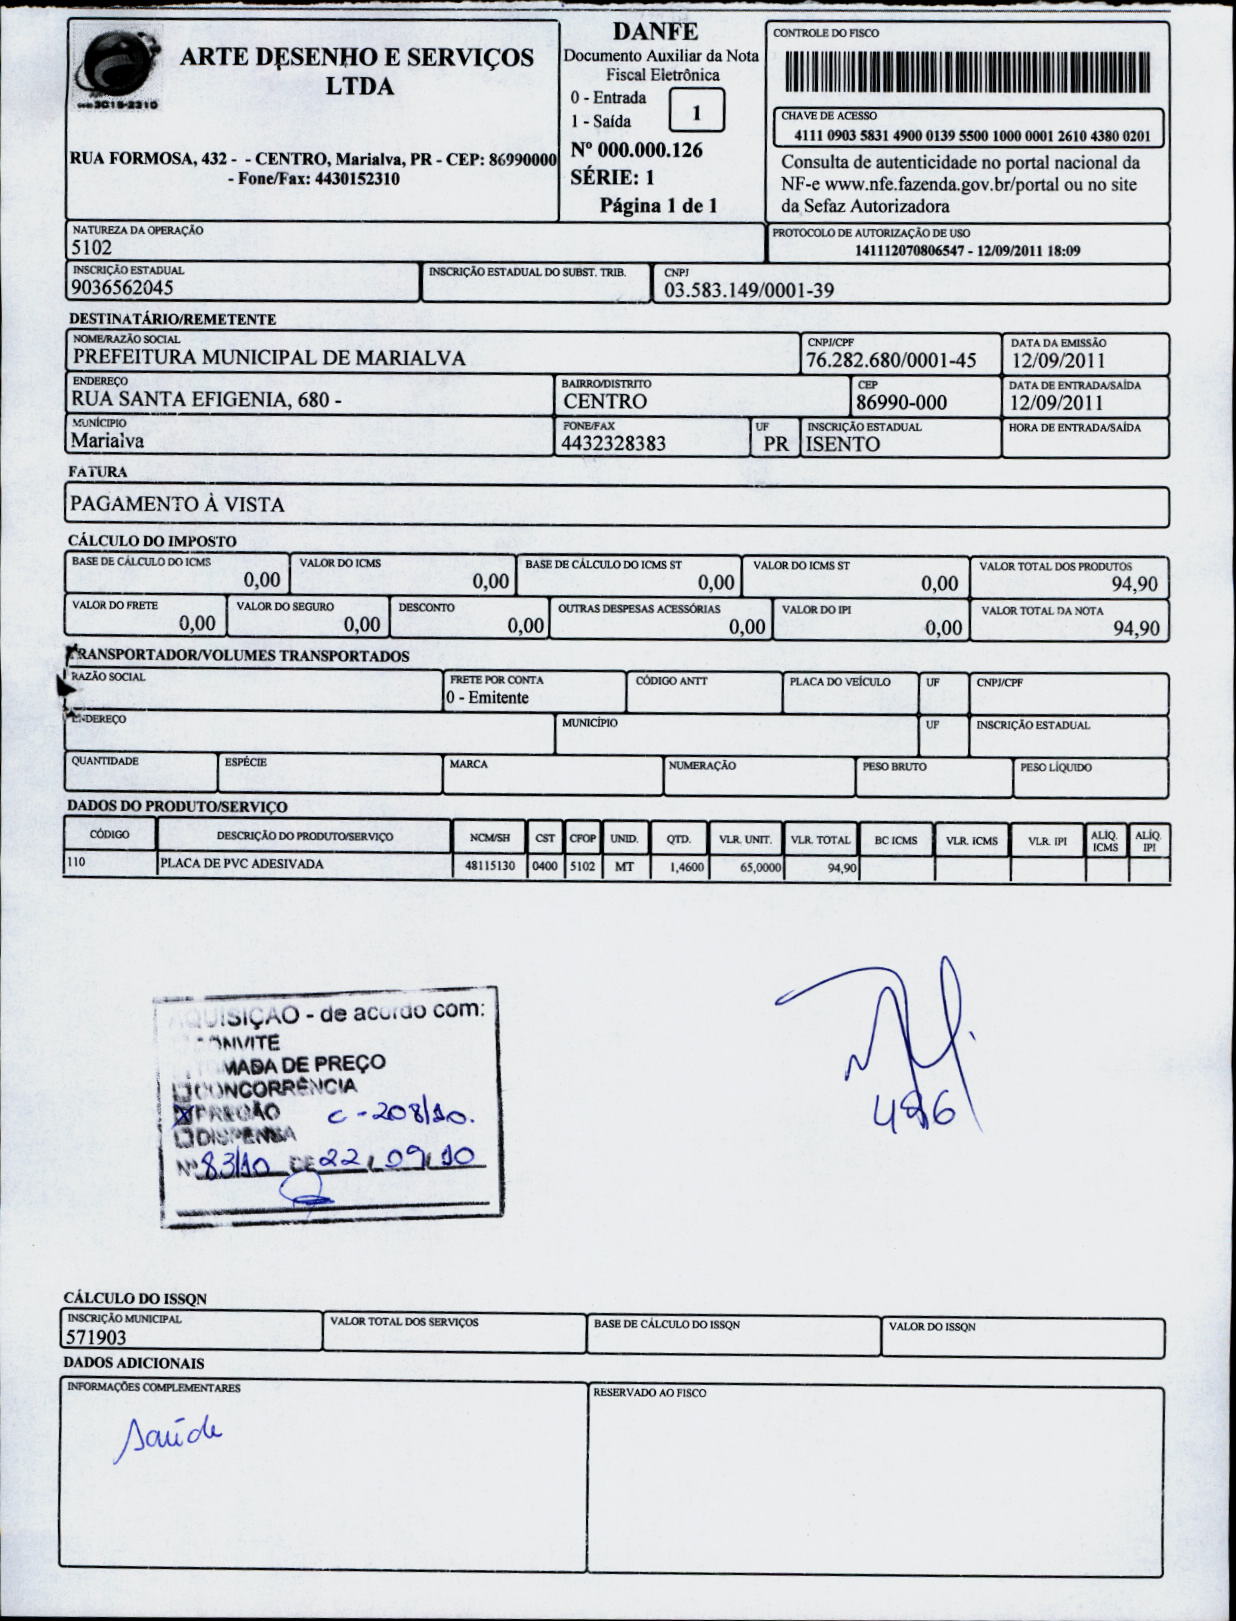 ARTE DESENHO E SERVIÇOS
LTDA
3015-2310
RUA FORMOSA, 432 - - CENTRO, Marialva, PR - CEP: 86990000
- Fone/Fax: 4430152310
DANFE
Documento Auxiliar da Nota
Fiscal Eletrônica
0 - Entrada
1 - Saída
1
Nº 000.000.126
SÉRIE: 1
Página 1 de 1
CONTROLE DO FISCO
CHAVE DE ACESSO
4111 0903 5831 4900 0139 5500 1000 0001 2610 4380 0201
Consulta de autenticidade no portal nacional da
NF-e www.nfe.fazenda.gov.br/portal ou no site
da Sefaz Autorizadora
NATUREZA DA OPERAÇÃO
5102
PROTOCOLO DE AUTORIZAÇÃO DE USO
141112070806547 - 12/09/2011 18:09
INSCRIÇÃO ESTADUAL
9036562045
INSCRIÇÃO ESTADUAL DO SUBST. TRIB.
CNPJ
03.583.149/0001-39
DESTINATÁRIO/REMETENTE
NOME/RAZÃO SOCIAL
PREFEITURA MUNICIPAL DE MARIALVA
CNPJ/CPF
76.282.680/0001-45
DATA DA EMISSÃO
12/09/2011
ENDEREÇO
RUA SANTA EFIGENIA, 680 -
BAIRRO/DISTRITO
CENTRO
CEP
86990-000
DATA DE ENTRADA/SAÍDA
12/09/2011
MUNÍCIPIO
Marialva
FONE/FAX
4432328383
UF
PR
INSCRIÇÃO ESTADUAL
ISENTO
HORA DE ENTRADA/SAÍDA
FATURA
PAGAMENTO À VISTA
CÁLCULO DO IMPOSTO
BASE DE CÁLCULO DO ICMS
0,00
VALOR DO ICMS
0,00
BASE DE CÁLCULO DO ICMS ST
0,00
VALOR DO ICMS ST
0,00
VALOR TOTAL DOS PRODUTOS
94,90
VALOR DO FRETE
0,00
VALOR DO SEGURO
0,00
DESCONTO
0,00
OUTRAS DESPESAS ACESSÓRIAS
0,00
VALOR DO IPI
0,00
VALOR TOTAL DA NOTA
94,90
TRANSPORTADOR/VOLUMES TRANSPORTADOS
RAZÃO SOCIAL
FRETE POR CONTA
0 - Emitente
CÓDIGO ANTT
PLACA DO VEÍCULO
UF
CNPJ/CPF
ENDEREÇO
MUNICÍPIO
UF
INSCRIÇÃO ESTADUAL
QUANTIDADE
ESPÉCIE
MARCA
NUMERAÇÃO
PESO BRUTO
PESO LÍQUIDO
DADOS DO PRODUTO/SERVIÇO
CÓDIGO DESCRIÇÃO DO PRODUTO/SERVIÇO NCM/SH CST CFOP UNID. QTD. VLR. UNIT. VLR. TOTAL BC ICMS VLR. ICMS VLR. IPI ALÍQ. ICMS ALÍQ. IPI
110 PLACA DE PVC ADESIVADA 48115130 0400 5102 MT 1,4600 65,0000 94,90
AQUISIÇÃO - de acordo com:
CONVITE
TOMADA DE PREÇO
CONCORRÊNCIA
PREGÃO C - 208/10.
DISPENSA
Nº 83/10 DE 22/09/10
486
CÁLCULO DO ISSQN
INSCRIÇÃO MUNICIPAL
571903
VALOR TOTAL DOS SERVIÇOS
BASE DE CÁLCULO DO ISSQN
VALOR DO ISSQN
DADOS ADICIONAIS
INFORMAÇÕES COMPLEMENTARES
Saúde
RESERVADO AO FISCO